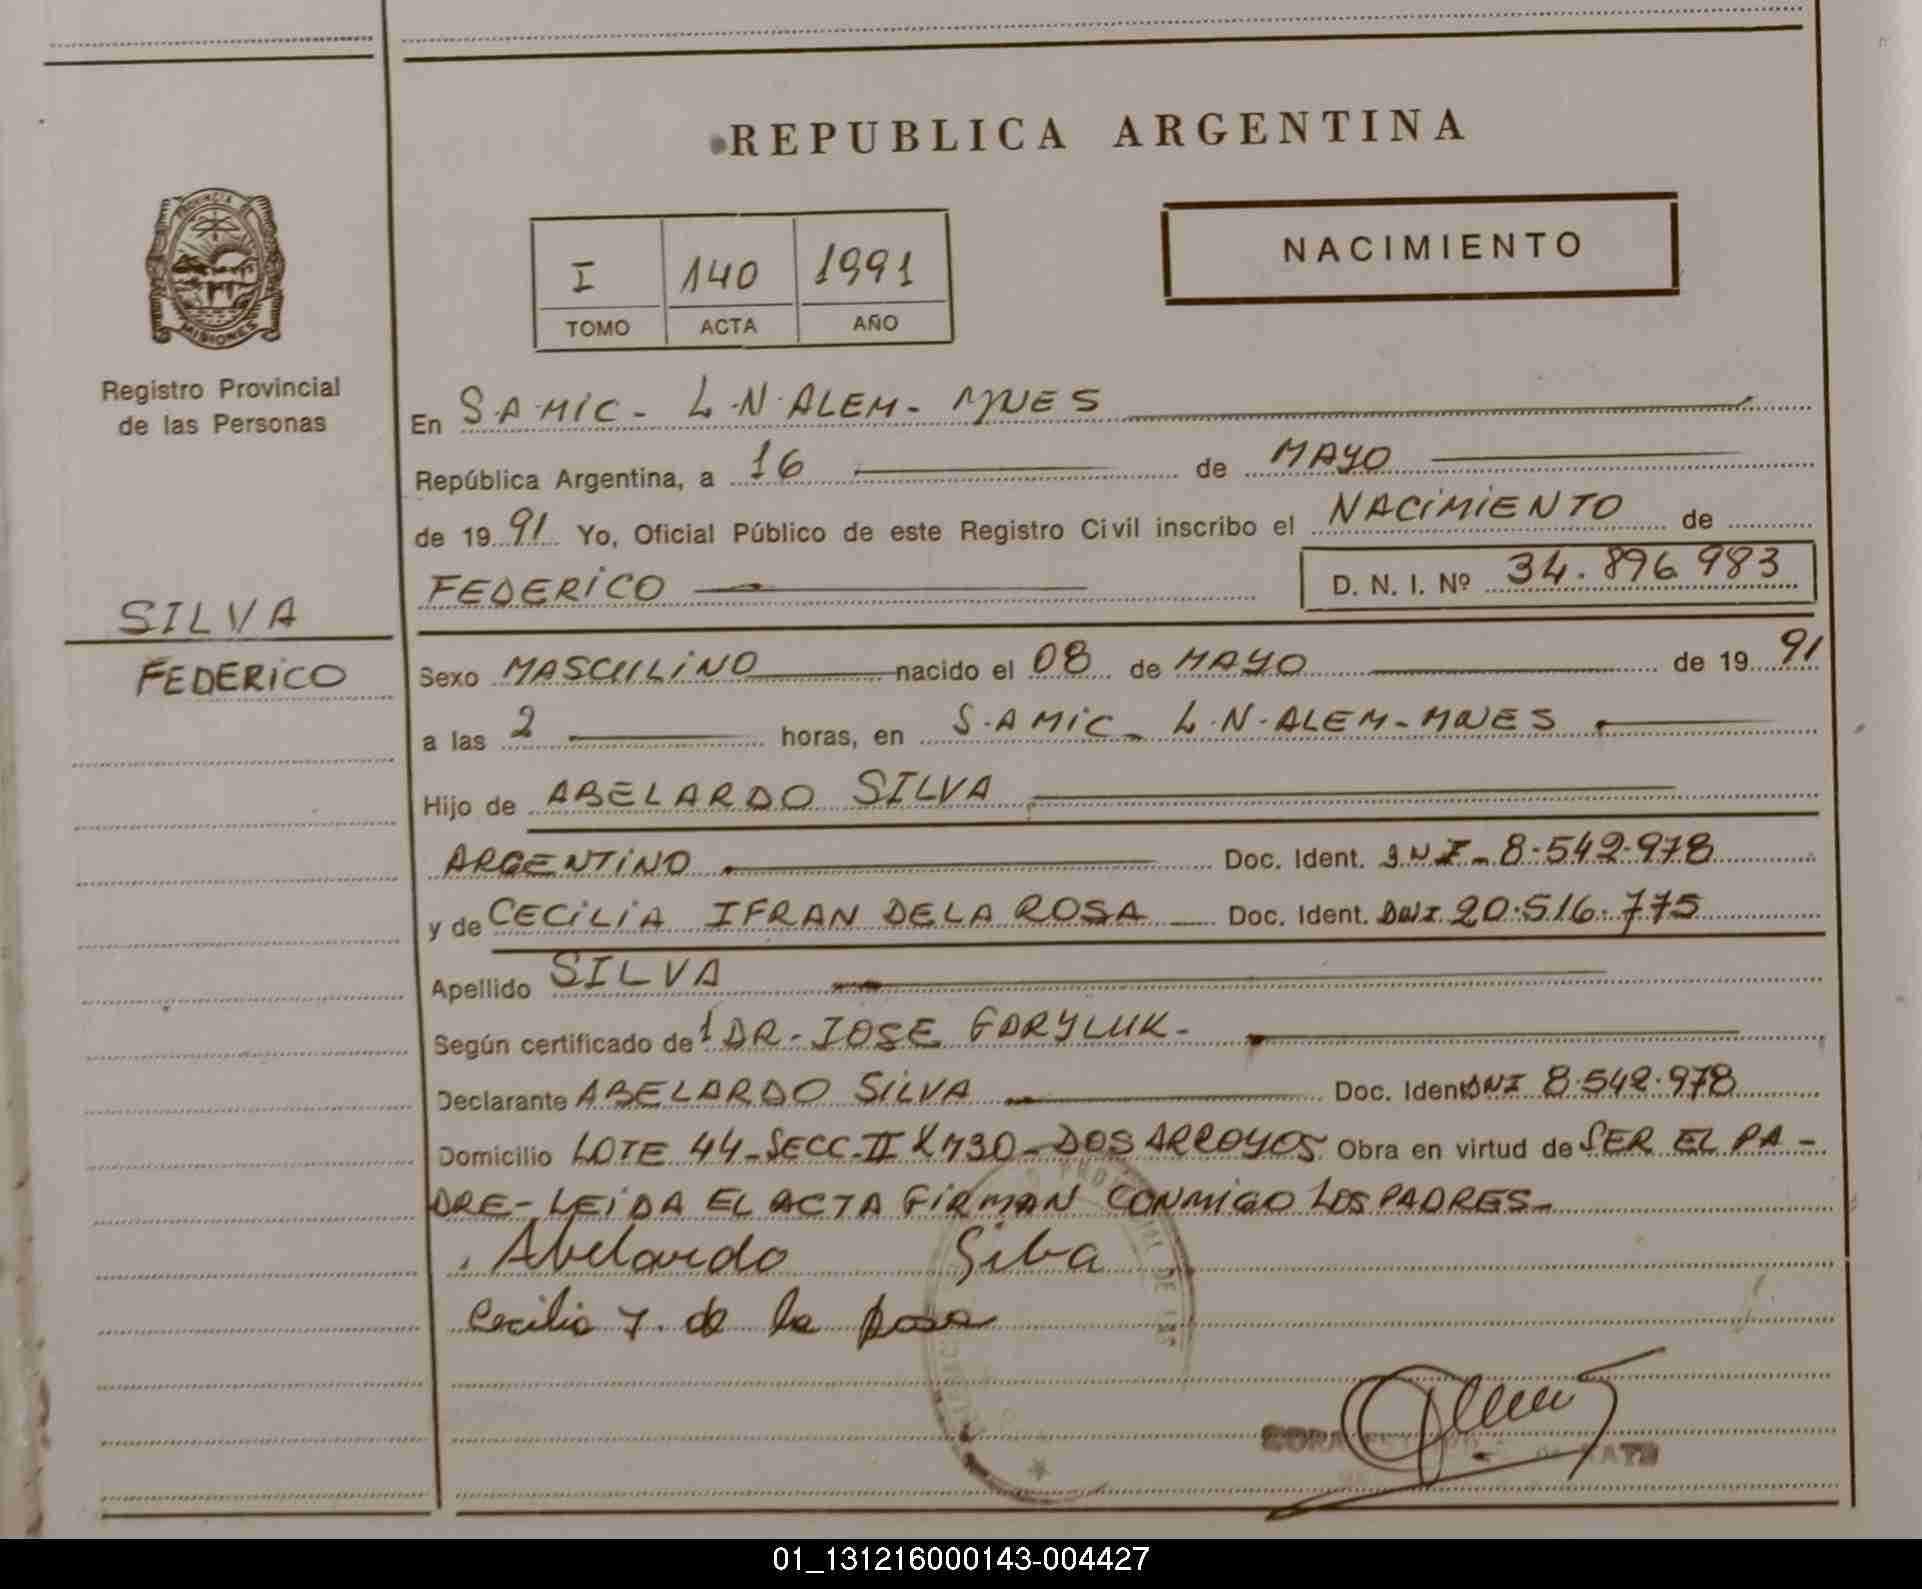 REPUBLICA ARGENTINA
PROVINCIA DE
MISIONES
Registro Provincial
de las Personas
I 140 1991
TOMO ACTA AÑO
NACIMIENTO
En S.A.MIC - L.N.ALEM - MNES
República Argentina, a 16 de MAYO
de 1991 Yo, Oficial Público de este Registro Civil inscribo el NACIMIENTO de
FEDERICO D. N. I. Nº 34.896.983
SILVA
FEDERICO
Sexo MASCULINO nacido el 08 de MAYO de 1991
a las 2 horas, en S.A MIC - L.N.ALEM - MNES
Hijo de ABELARDO SILVA
ARGENTINO Doc. Ident. DNI - 8.542.978
y de CECILIA IFRAN DE LA ROSA Doc. Ident. DNI 20.516.775
Apellido SILVA
Según certificado de 1 DR - JOSE
Declarante ABELARDO SILVA Doc. Ident DNI 8.542.978
Domicilio LOTE 44 - SECC - II DOS ARROYOS Obra en virtud de SER EL PA -
DRE - LEIDA EL ACTA FIRMAN CONMIGO LOS PADRES -
Abelardo Silva
Cecilia I. de la Rosa
01_131216000143-004427